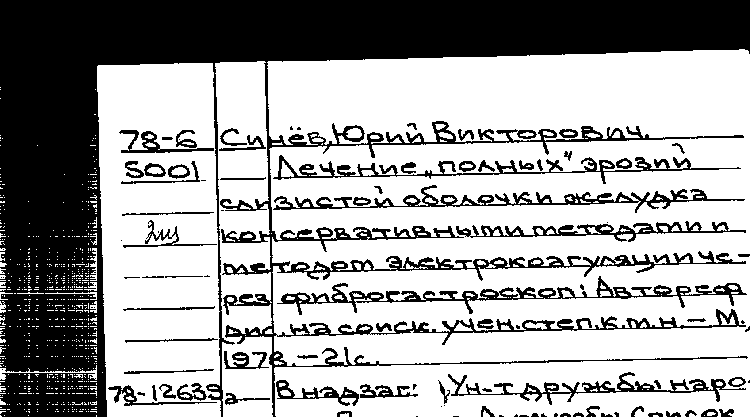 78-6 Синёв, Юрий Викторович.
5001 Лечение „полных" эрозий
слизистой оболочки желудка
2 консервативными методами и
методом электрокоагуляции че-
рез фиброгастроскоп: Автореф
дис. на соиск. учен. степ. к.м.н. – М.,
1978. – 21с.
78-12639 В надзаг: Ун-т дружбы наро-